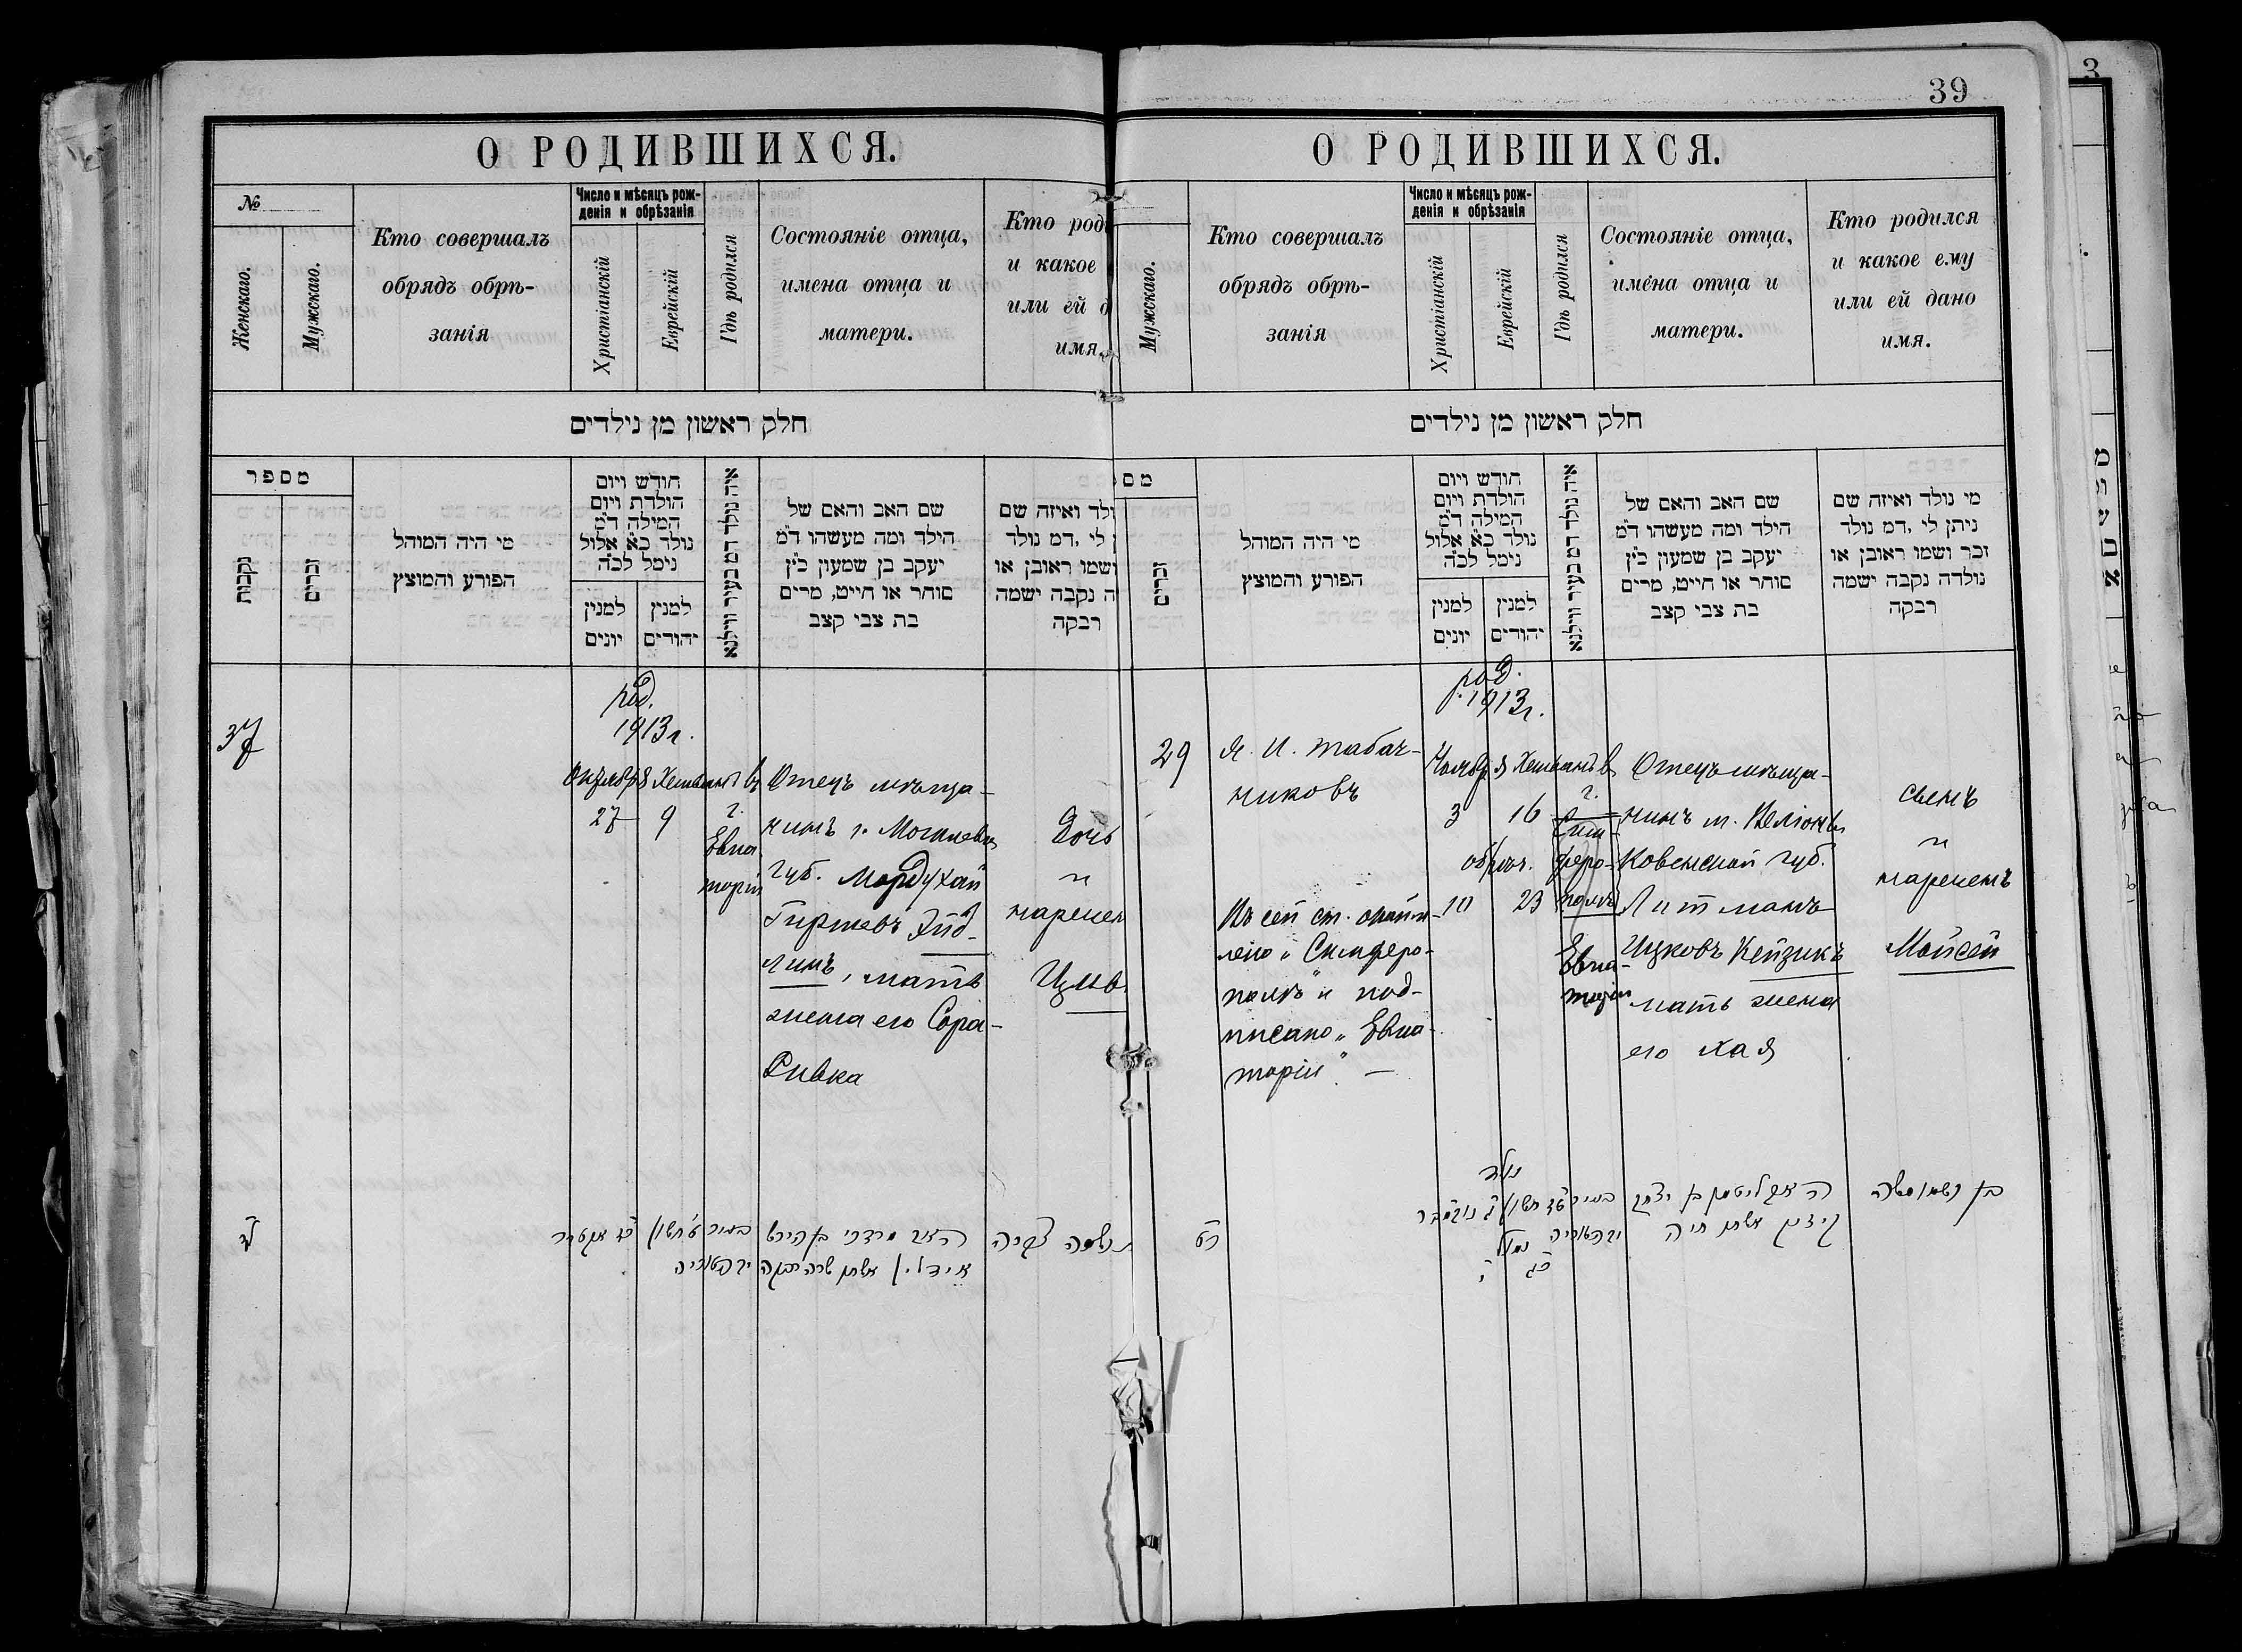 39
3
О РОДИВШИХСЯ.
№
Женскаго.
Мужскаго.
Кто совершалъ
обрядъ обрѣ-
занія
Число и мѣсяцъ рож-
денія и обрѣзанія
Христіанскій
Еврейскій
Гдѣ родился
Состояніе отца,
имена отца и
матери.
Кто род
и какое
или ей д
имя.
חלק ראשון מן נילדים
מספר
נקבות
זכרים
מי היה המוהל
הפורע והמוצץ
חודש ויום
הולדת ויום
המילה ד"מ
נולד כ"א אלול
נימל לכ"ה
למנין
יונים
למנין
יהודים
איה נולד דמ בעיר ווילנא
שם האב והאם של
הילד ומה מעשהו ד"מ
יעקב בן שמעון כ"ץ
סוחר או חייט, מרים
בת צבי קצב
ולד ואיזה שם
לי ,דמ נולד
ושמו ראובן או
ה נקבה ישמה
רבקה
37
род.
1913 г.
Октября Хешванъ
27 9
въ
г.
Евпа
торіи
Отецъ мѣща-
нинъ г. Могилева
губ. Мордухай
Гиршевъ Эйд-
линъ, мать
жена его Сора-
Ривка
Дочь
"
наречен
Цив
О РОДИВШИХСЯ.
Мужскаго.
Кто совершалъ
обрядъ обрѣ-
занія
Число и мѣсяцъ рож-
денія и обрѣзанія
Христіанскій
Еврейскій
Гдѣ родился
Состояніе отца,
имена отца и
матери.
Кто родился
и какое ему
или ей дано
имя.
חלק ראשון מן נילדים
מס
זכרים
מי היה המוהל
הפורע והמוצץ
חודש ויום
הולדת ויום
המילה ד"מ
נולד כ"א אלול
נימל לכ"ה
למנין
יונים
למנין
יהודים
איה נולד דמ בעיר ווילנא
שם האב והאם של
הילד ומה מעשהו ד"מ
יעקב בן שמעון כ"ץ
סוחר או חייט, מרים
בת צבי קצב
מי נולד ואיזה שם
ניתן לי ,דמ נולד
זכר ושמו ראובן או
נולדה נקבה ישמה
רבקה
29
Я. И. Табач-
никовъ
Въ сей ст.
"Симферо-
полѣ" и под-
писано "Евпа-
торіи". —
род.
1913 г.
Ноября Хешванъ
3 16
обрѣз.
10 23
въ
г.
Сим-
феро-
полѣ
Евпа-
торіи
Отецъ мѣща-
нинъ м.
Ковенской губ.
Литманъ
Ицковъ Кейзикъ
мать жена
его Хая
сынъ
"
нареченъ
Мойсей
נולד